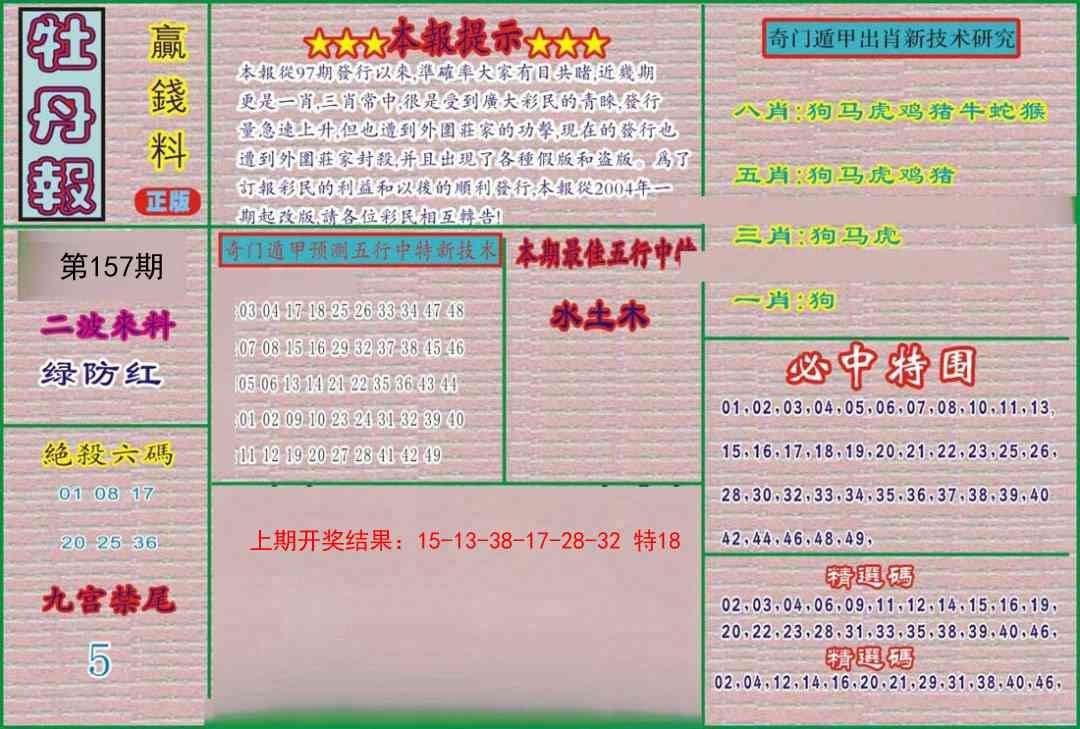 牡丹報
贏錢料
正版
★★★本報提示★★★
本報從97期發行以來,準確率大家有目共睹,近幾期
更是一肖,三肖常中,很是受到廣大彩民的青睞,發行
量急速上升,但也遭到外圍莊家的功擊,現在的發行也
遭到外圍莊家封殺,并且出現了各種假版和盗版。爲了
訂報彩民的利益和以後的順利發行,本報從2004年一
期起改版,請各位彩民相互轉告!
奇门遁甲出肖新技术研究
八肖:狗马虎鸡猪牛蛇猴
五肖:狗马虎鸡猪
三肖:狗马虎
一肖:狗
第157期
二波來料
绿防红
奇门遁甲预测五行中特新技术
:03 04 17 18 25 26 33 34 47 48
:07 08 15 16 29 32 37 38 45 46
:05 06 13 14 21 22 35 36 43 44
:01 02 09 10 23 24 31 32 39 40
:11 12 19 20 27 28 41 42 49
本期最佳五行中
水土木
必中特围
01,02,03,04,05,06,07,08,10,11,13,
15,16,17,18,19,20,21,22,23,25,26,
28,30,32,33,34,35,36,37,38,39,40
42,44,46,48,49,
絶殺六碼
01 08 17
20 25 36
九宫禁尾
5
上期开奖结果：15-13-38-17-28-32 特18
精選碼
02,03,04,06,09,11,12,14,15,16,19,
20,22,23,28,31,33,35,38,39,40,46,
精選碼
02,04,12,14,16,20,21,29,31,38,40,46,